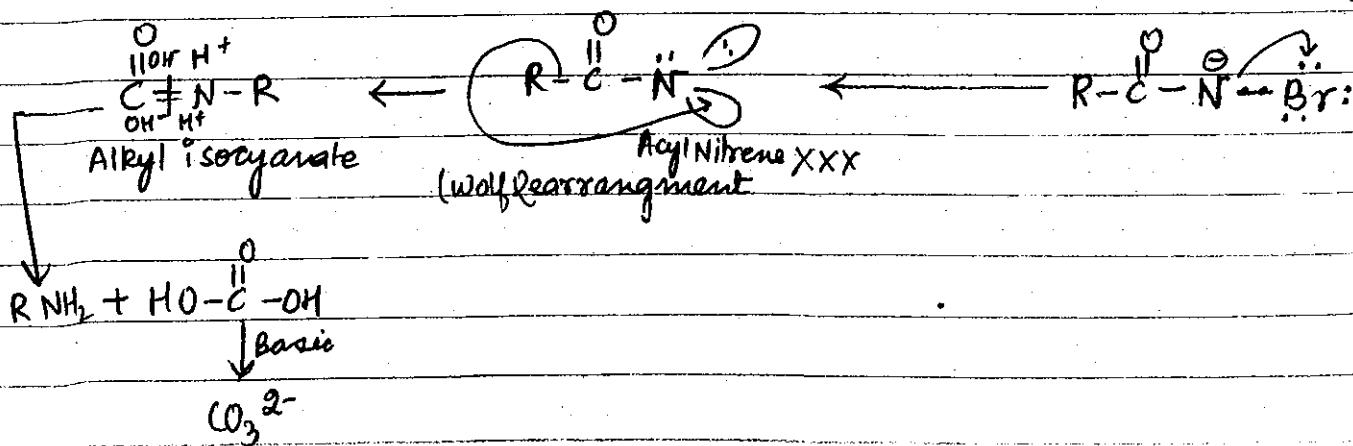 O=C=N-R OH H⁺ OH H⁺ ← R-C(=O)-N̈: ← R-C(=O)-N⊖-Br:
Alkyl isocyanate
Acyl Nitrene XXX
(Wolf Rearrangment
R NH₂ + HO-C(=O)-OH
Basic
CO₃²⁻